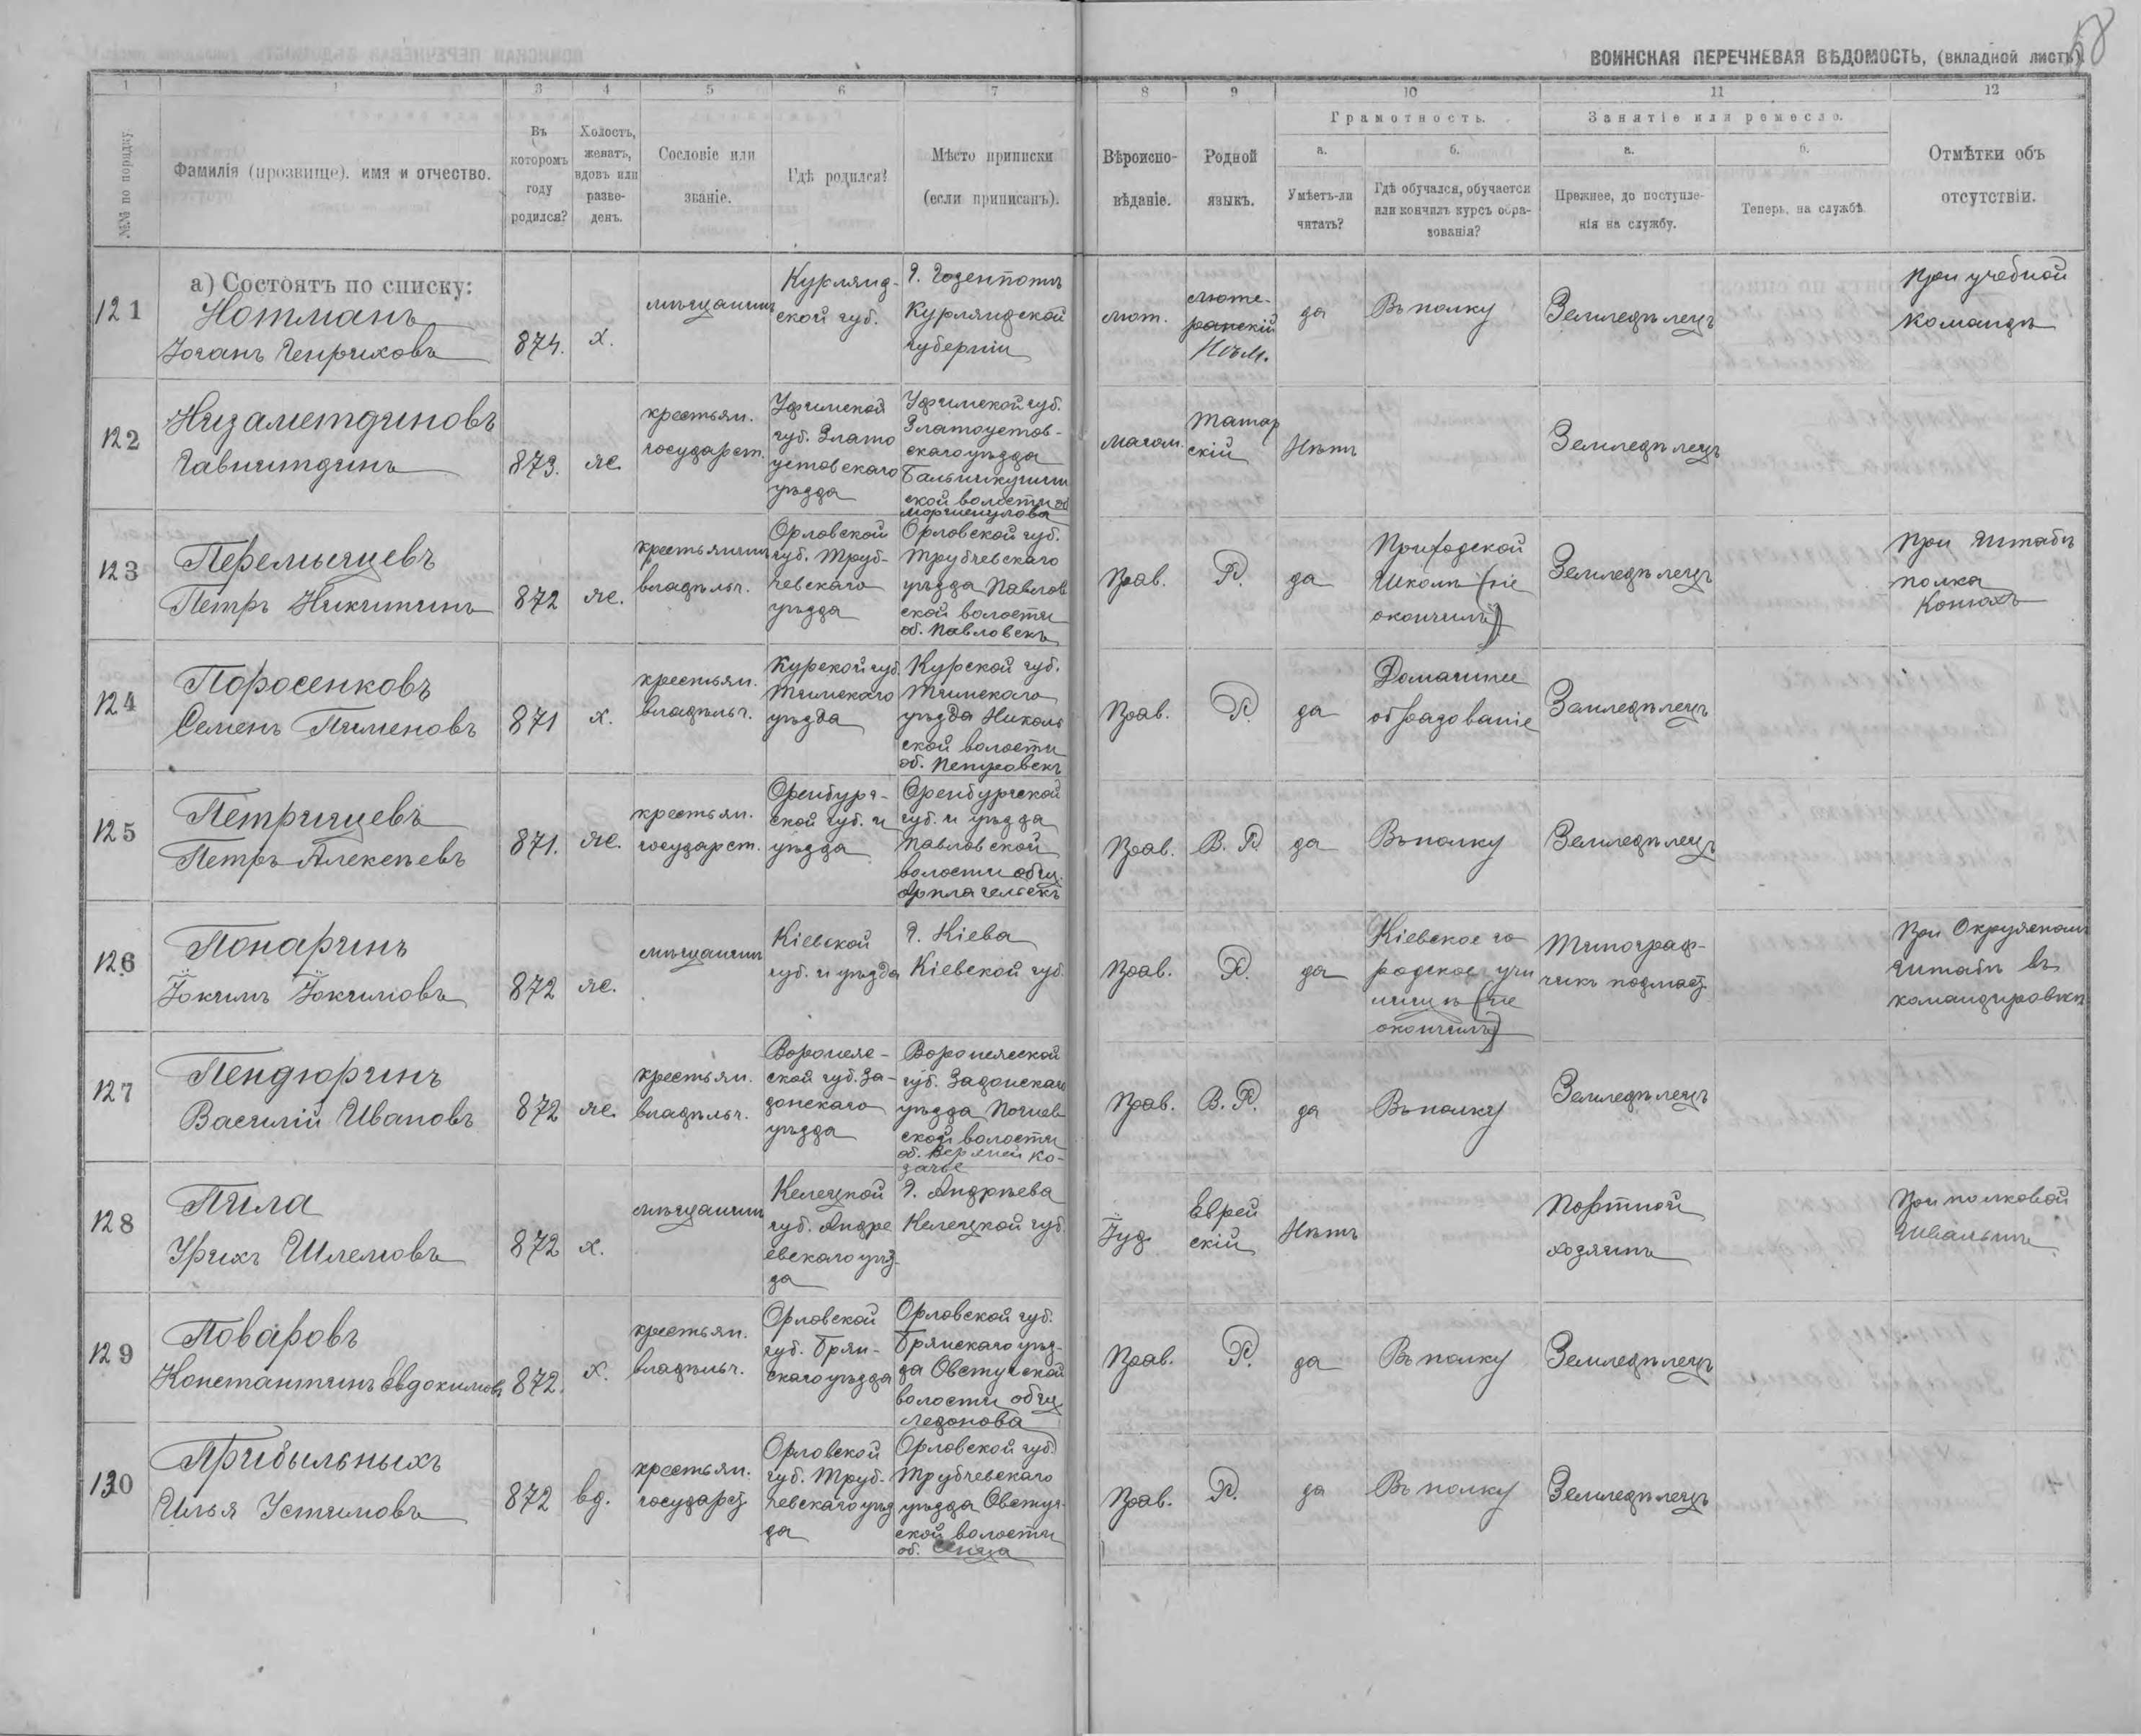 58
ВОИНСКАЯ ПЕРЕЧНЕВАЯ ВѢДОМОСТЬ, (вкладной листъ).
1 2 3 4 5 6 7 8 9 10 11 12
№№ по порядку.
Фамилія (прозвище), имя и отчество.
Въ которомъ году родился?
Холостъ, женатъ, вдовъ или разведенъ.
Сословіе или званіе.
Гдѣ родился?
Мѣсто приписки (если приписанъ).
Вѣроисповѣданіе.
Родной языкъ.
Грамотность.
а. Умѣетъ-ли читать?
б. Гдѣ обучался, обучается или кончилъ курсъ образованія?
Занятіе или ремесло.
а. Прежнее, до поступленія на службу.
б. Теперь, на службѣ.
Отмѣтки объ отсутствіи.
а) Состоятъ по списку:
121 Нотманъ Іоганъ Генриховъ 874. х. мѣщанинъ Курляндской губ. Г. Газенпотъ Курляндской губерніи лют. лютеранскій Нѣм. да Въ полку Земледѣлецъ При учебной командѣ
122 Низаметдиновъ 873. ж. крестьян. государст. Уфимской губ. Златоустовскаго уѣзда Уфимской губ. Златоустовскаго уѣзда волости магом. Татарскій Нѣтъ Земледѣлецъ
123 Перемысцевъ Петръ Никитинъ 872 ж. крестьянинъ владѣльч. Орловской губ. Трубчевскаго уѣзда Орловской губ. Трубчевскаго уѣзда Павловской волости об. Павловскъ Прав. Р. да Приходской школѣ (не окончилъ) Земледѣлецъ При Штабѣ полка Конюхъ
124 Поросенковъ Семенъ Пименовъ 871 х. крестьян. владѣльч. Курской губ. Тимскаго уѣзда Курской губ. Тимскаго уѣзда Никольской волости об. Петровскъ Прав. Р. да Домашнее образованіе Земледѣлецъ
125 Петрищевъ Петръ Алексѣевъ 871. ж. крестьян. государст. Оренбургской губ. и уѣзда Оренбургской губ. и уѣзда Павловской волости общ. Прав. В. Р. да Въ полку Земледѣлецъ
126 Понаринъ Іокимъ Іокимовъ 872 ж. мѣщанинъ Кіевской губ. и уѣзда Г. Кіева Кіевской губ. Прав. Р. да Кіевское городское училищѣ (не окончилъ) Типографчикъ подмаст. При Окружномъ штабѣ въ командировкѣ
127 Пендюринъ Василій Ивановъ 872 ж. крестьян. владѣльч. Воронежской губ. Задонскаго уѣзда Воронежской губ. Задонскаго уѣзда волости об. Верхней Козачье Прав. В. Р. да Въ полку Земледѣлецъ
128 Пила Урихъ Шлемовъ 872 х. мѣщанинъ Келецкой губ. Андреевскаго уѣзда Г. Андрѣева Келецкой губ. Іуд. Еврейскій Нѣтъ Портной хозяинъ При полковой швальнѣ
129 Поваровъ Константинъ Евдокимовъ 872. х. крестьян. владѣльч. Орловской губ. Брянскаго уѣзда Орловской губ. Брянскаго уѣзда Овстугской волости общ. Прав. Р. да Въ полку Земледѣлецъ
130 Прибыльныхъ Илья Устимовъ 872 вд. крестьян. государст. Орловской губ. Трубчевскаго уѣзда Орловской губ. Трубчевскаго уѣзда Овстугской волости об. Прав. Р. да Въ полку Земледѣлецъ